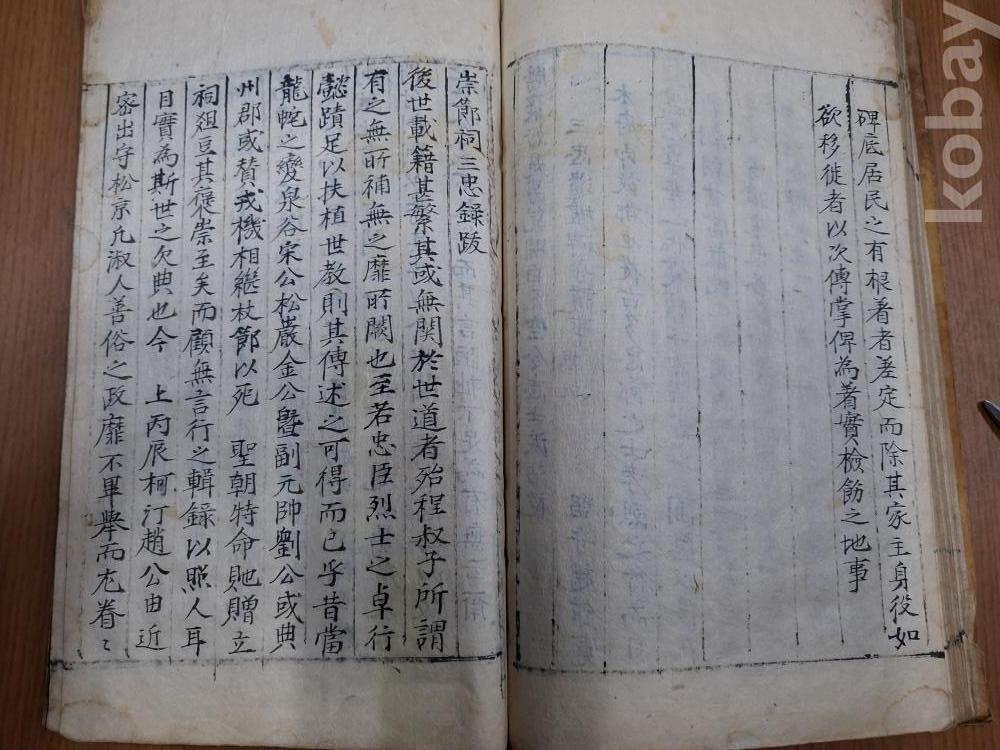 碑底居民之有根着者差定而除其家主身役如
欲移徙者以次傳掌俾為着實檢飭之地事
崇節祠三忠錄跋
後世載籍甚繁其或無関於世道者殆程叔子所謂
有之無所補無之靡所闕也至若忠臣烈士之卓行
懿蹟足以扶植世教則其傳述之可得而已乎昔當
龍蛇之變泉谷宋公松巖金公曁副元帥劉公或典
州郡或賛戎機相継杖節以死 聖朝特命貤贈立
祠俎豆其褒崇至矣而顧無言行之輯錄以照人耳
目實為斯世之欠典也今 上丙辰柯汀趙公由近
密出守松京凡淑人善俗之政靡不畢舉而尤眷〻
kobay